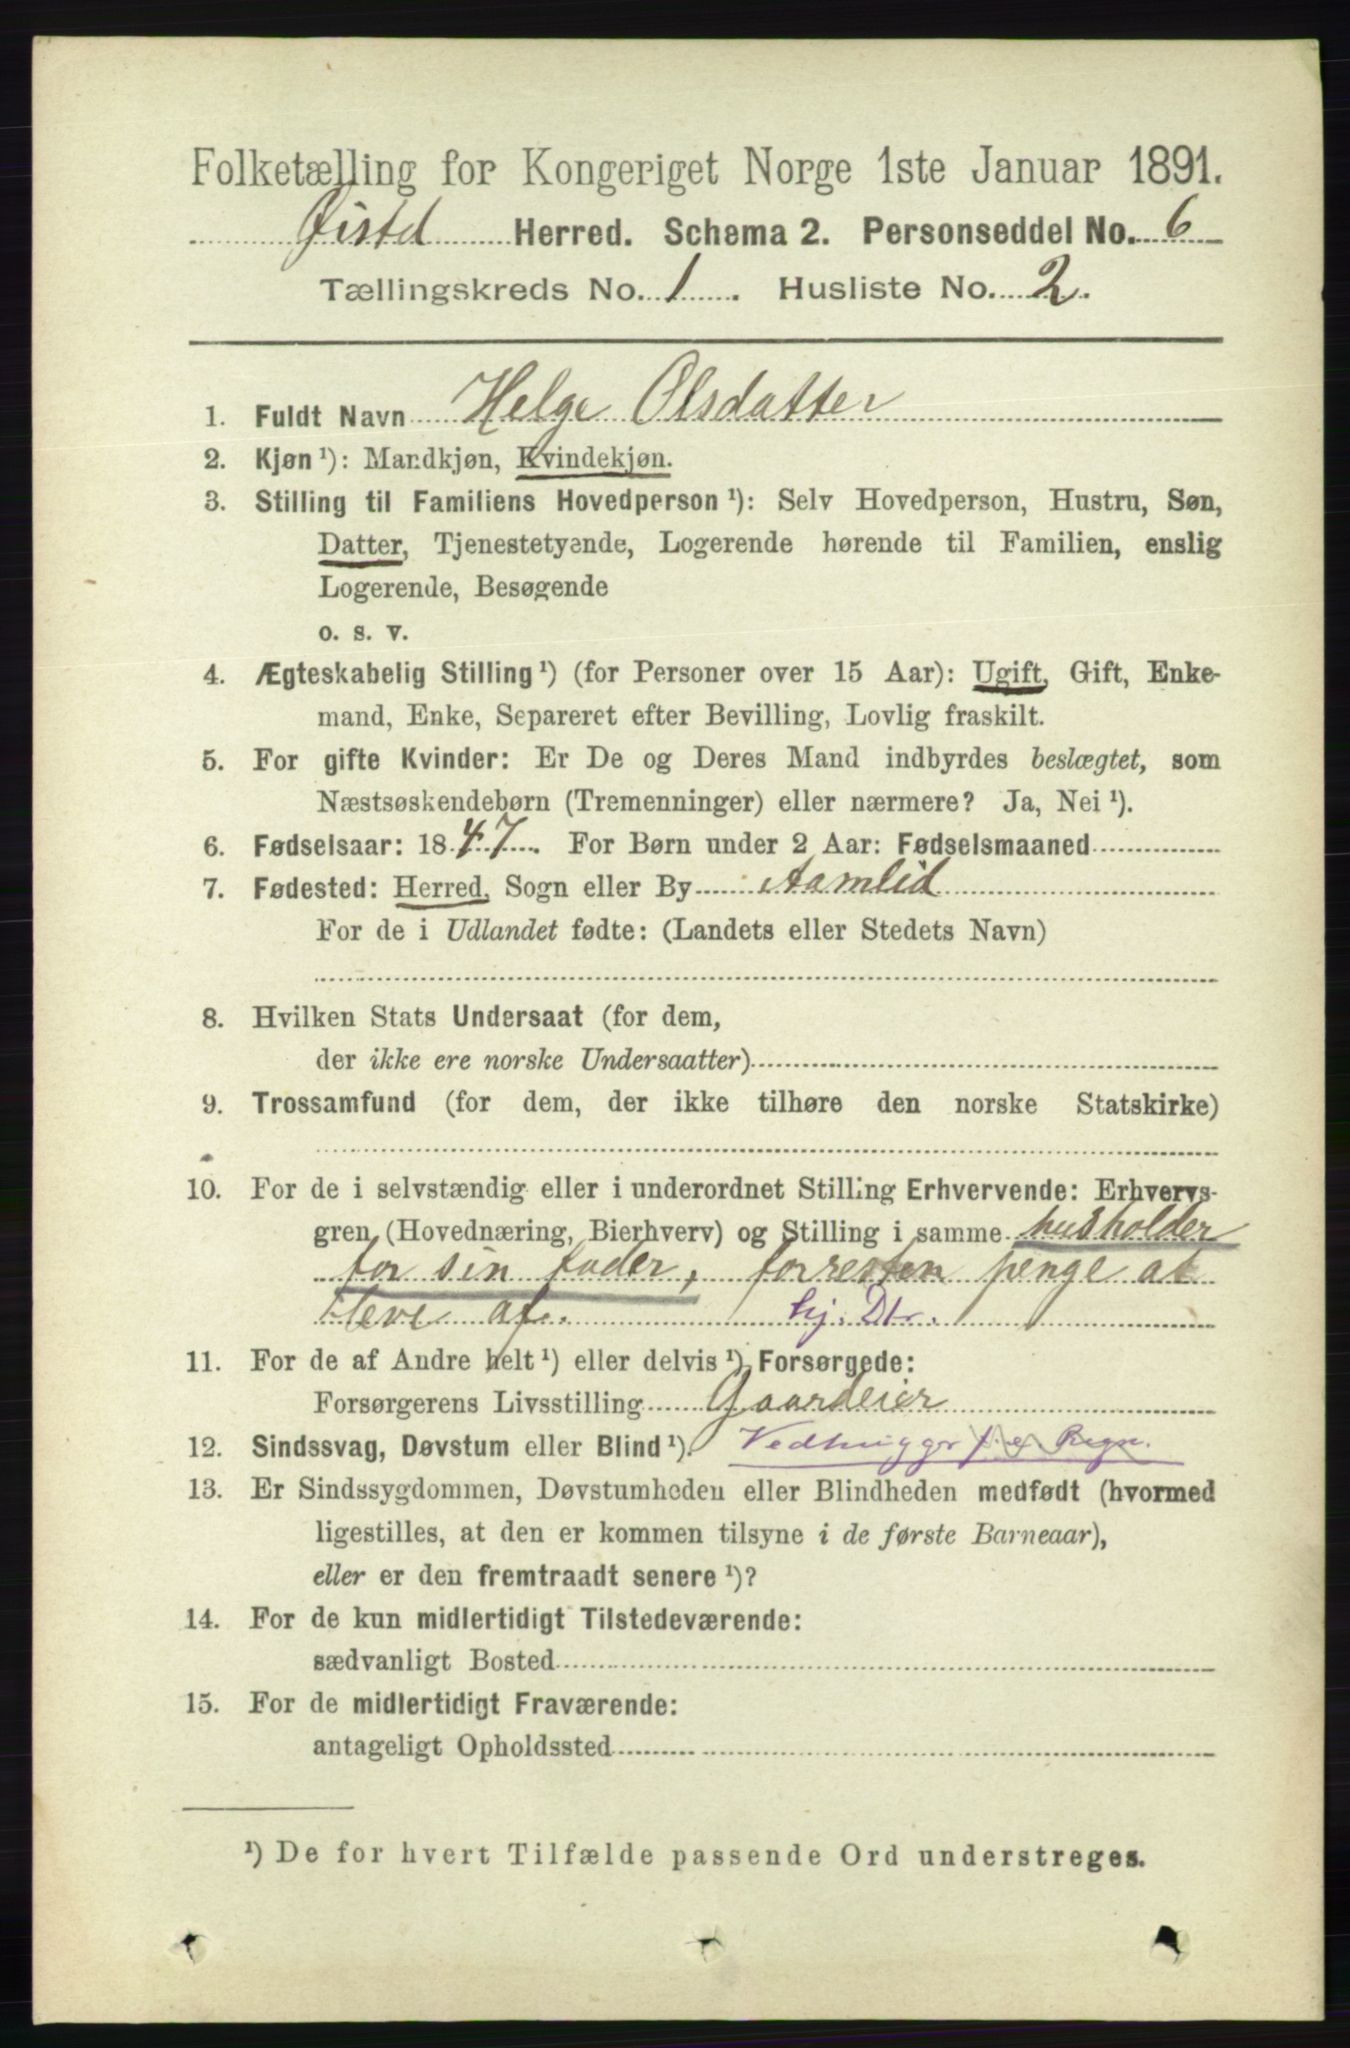 Folketælling for Kongeriget Norge 1ste Januar 1891.
Øistd Herred. Schema 2. Personseddel No. 6
Tællingskreds No. 1. Husliste No. 2.
1. Fuldt Navn Helge Olsdatter
2. Kjøn ¹): Mandkjøn, Kvindekjøn.
3. Stilling til Familiens Hovedperson ¹): Selv Hovedperson, Hustru, Søn,
Datter, Tjenestetyende, Logerende hørende til Familien, enslig
Logerende, Besøgende
o. s. v.
4. Ægteskabelig Stilling ¹) (for Personer over 15 Aar): Ugift, Gift, Enke-
mand, Enke, Separeret efter Bevilling, Lovlig fraskilt.
5. For gifte Kvinder: Er De og Deres Mand indbyrdes beslægtet, som
Næstsøskendebørn (Tremenninger) eller nærmere? Ja, Nei ¹).
6. Fødselsaar: 1847. For Børn under 2 Aar: Fødselsmaaned
7. Fødested: Herred, Sogn eller By Aamlid
For de i Udlandet fødte: (Landets eller Stedets Navn)
8. Hvilken Stats Undersaat (for dem,
der ikke ere norske Undersaatter)
9. Trossamfund (for dem, der ikke tilhøre den norske Statskirke)
10. For de i selvstændig eller i underordnet Stilling Erhvervende: Erhvervs-
gren (Hovednæring, Bierhverv) og Stilling i samme husholder
for sin fader, forresten penge at
leve af. hj. Dtr.
11. For de af Andre helt ¹) eller delvis ¹) Forsørgede:
Forsørgerens Livsstilling Gaardeier
12. Sindssvag, Døvstum eller Blind ¹). Vedhugger f. e. Regn.
13. Er Sindssygdommen, Døvstumheden eller Blindheden medfødt (hvormed
ligestilles, at den er kommen tilsyne i de første Barneaar),
eller er den fremtraadt senere ¹)?
14. For de kun midlertidigt Tilstedeværende:
sædvanligt Bosted
15. For de midlertidigt Fraværende:
antageligt Opholdssted
¹) De for hvert Tilfælde passende Ord understreges.